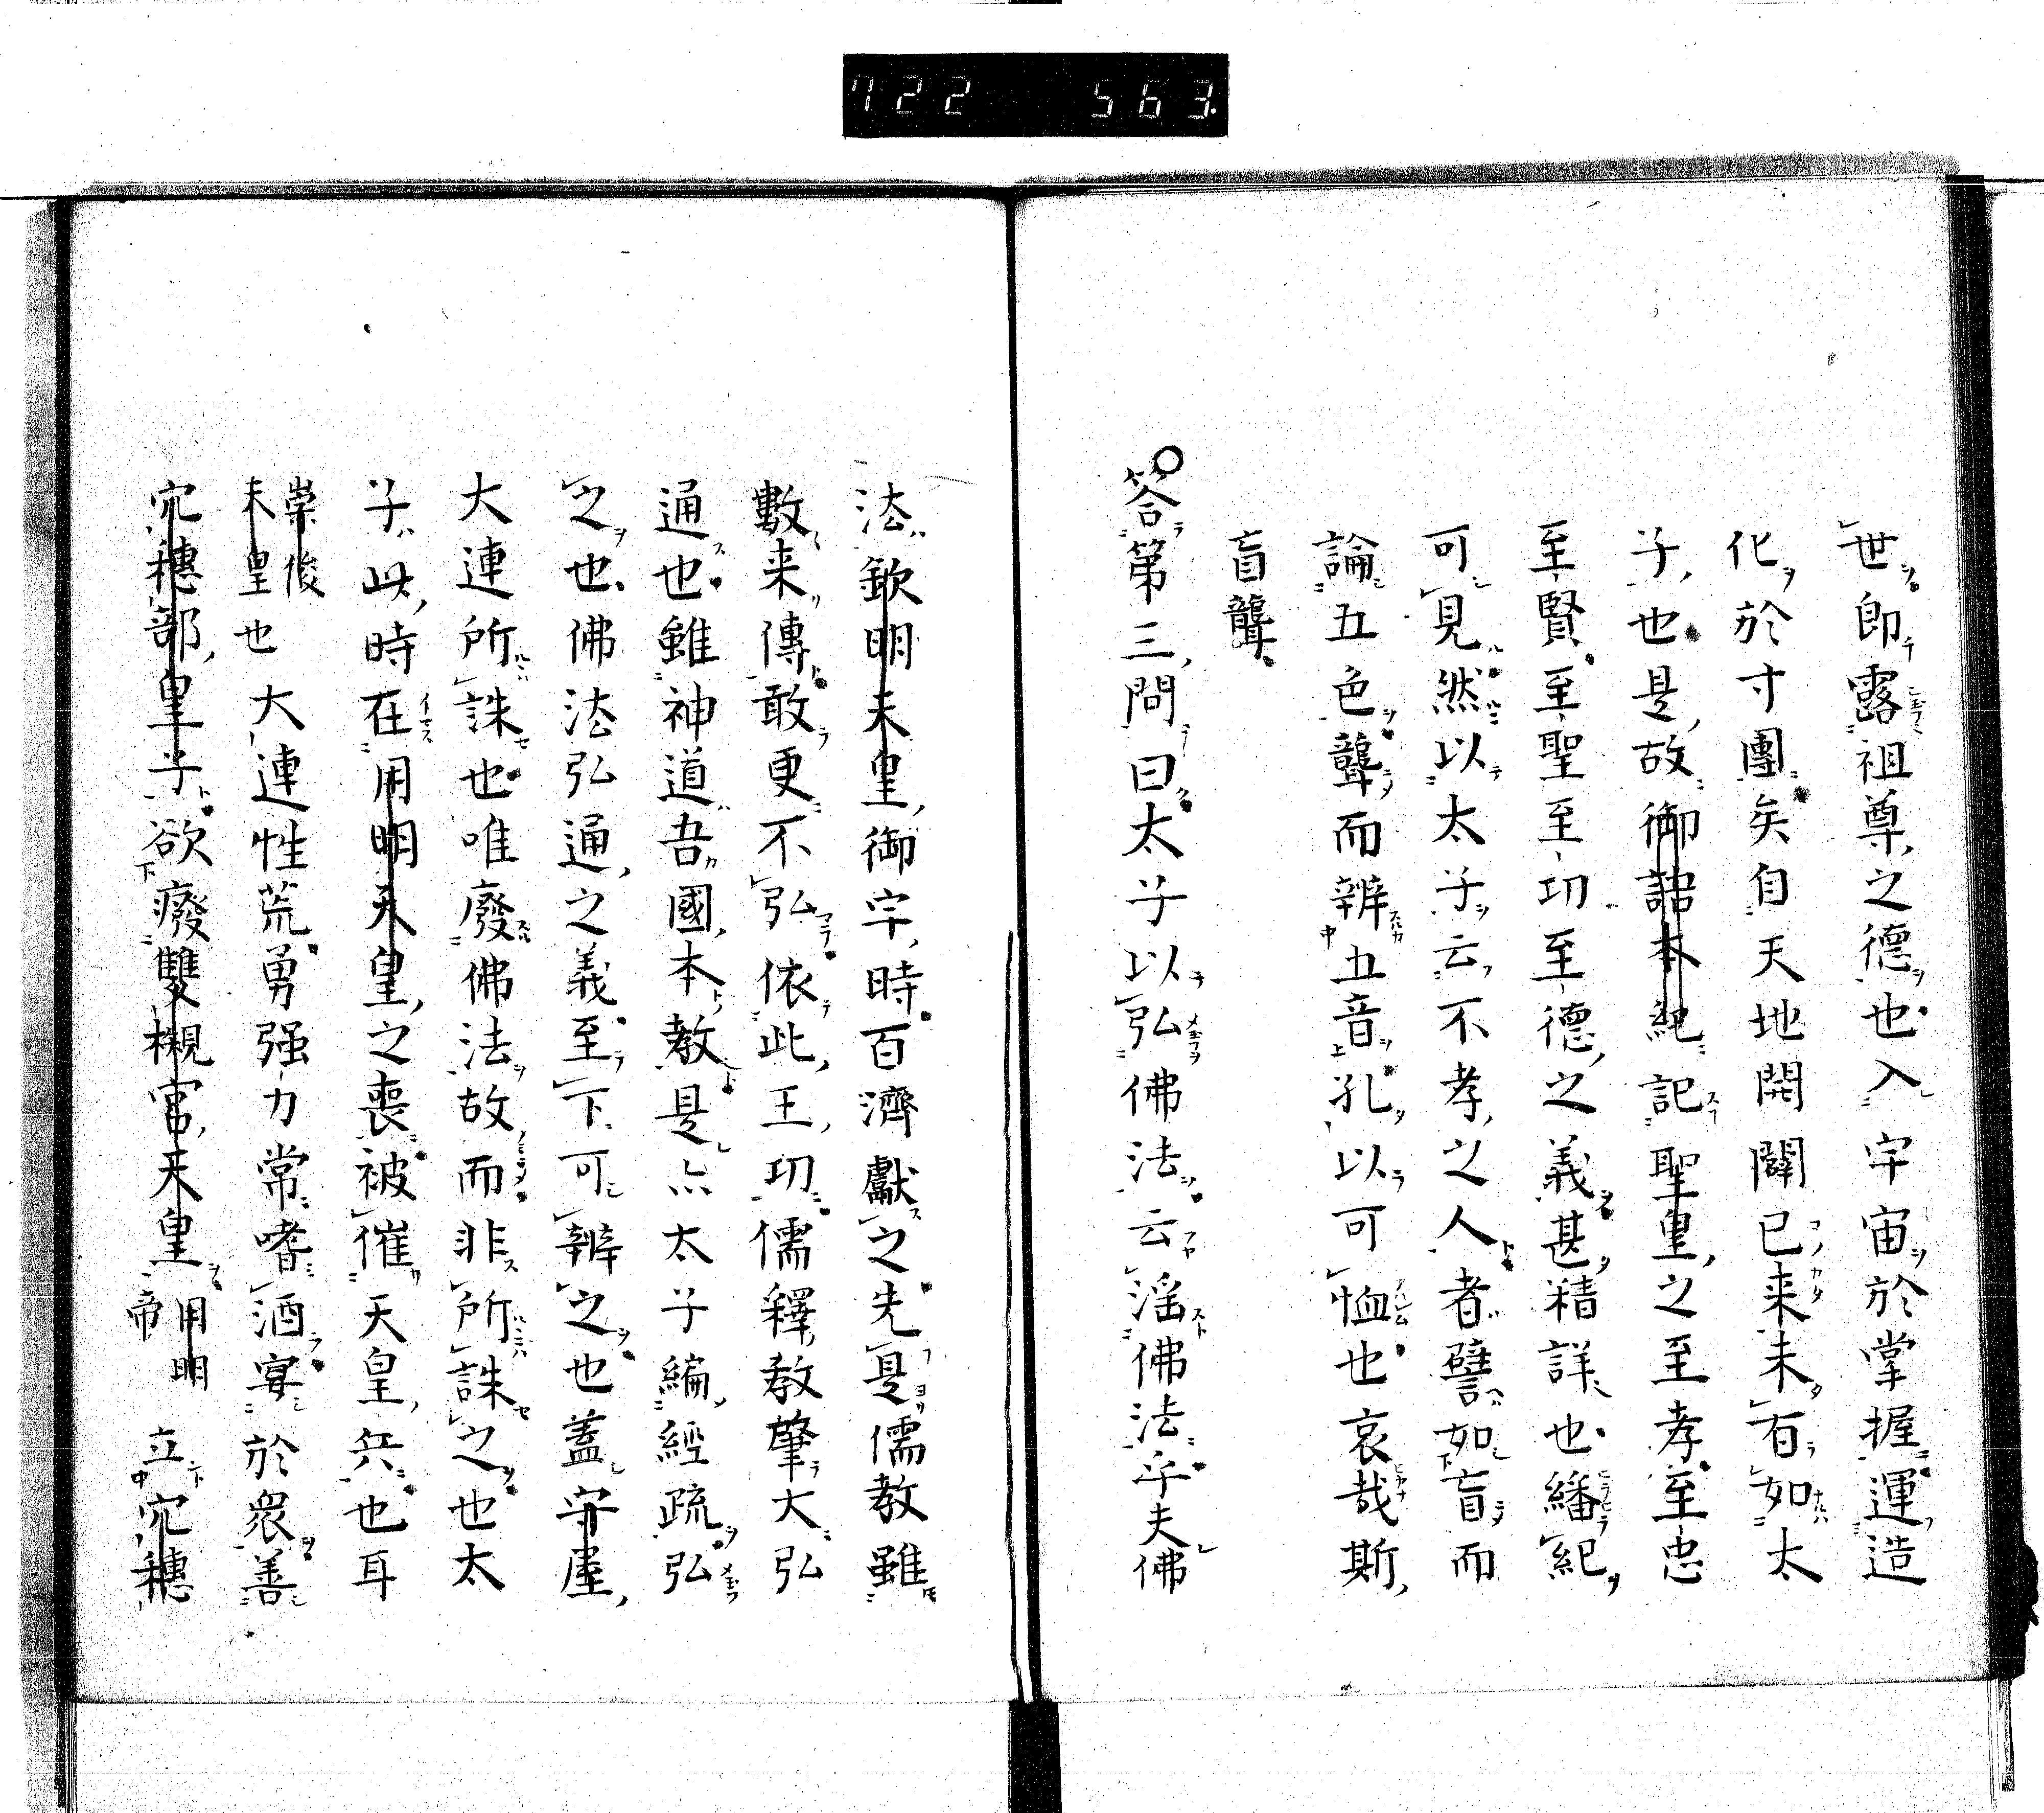 722 563
世即露祖尊之德也入宇宙於掌握運造
化於寸團矣自天地開闢已来未有如太
子也是故御詔本紀記聖皇之至孝至忠
至賢至聖至功至德之義甚精詳也繙紀
可見然以太子云不孝之人者譬如盲而
論五色聾而辨五音孔以可恤也哀哉斯
盲聾
答第三問曰太子以弘佛法云滛佛法乎夫佛
法欽明天皇御宇時百濟獻之先是儒教雖
數来傳敢更不弘依此王功儒釋教肇大弘
通也雖神道吾國本教是亦太子編經疏弘
之也佛法弘通之義至下可辨之也蓋守屋
大連所誅也唯廢佛法故而非所誅之也太
子此時在用明天皇之喪被催天皇兵也耳
崇俊
天皇也 大連性荒勇强力常嗜酒宴於衆善
穴穗部皇子欲廢雙槻宮天皇 用明帝 立穴穗